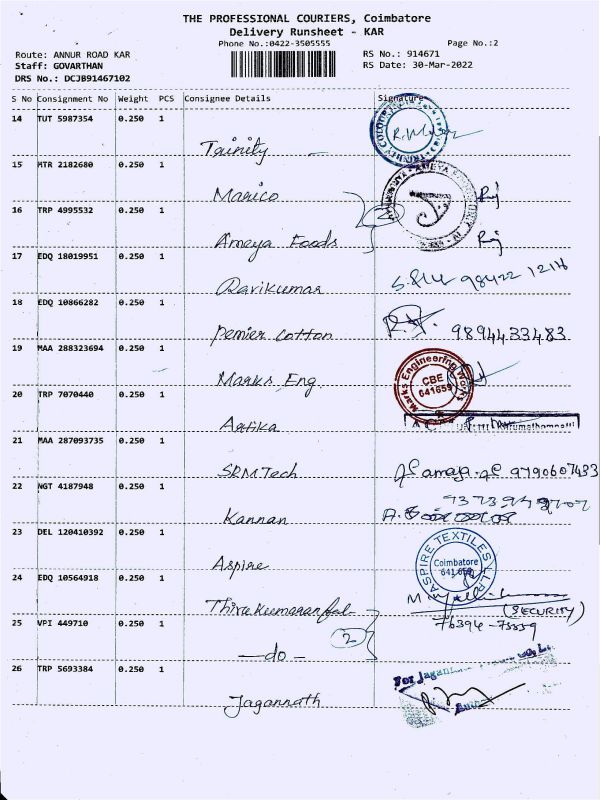 THE PROFESSIONAL COURIERS, Coimbatore
Delivery Runsheet - KAR
Phone No.:0422-3505555
Page No.:2
Route: ANNUR ROAD KAR
RS No.: 914671
Staff: GOVARTHAN
RS Date: 30-Mar-2022
DRS No.: DCJB91467102
S No Consignment No Weight PCS Consignee Details Signature
14 TUT 5987354 0.250 1
Trinity
15 MTR 2182680 0.250 1
Marico
16 TRP 4995532 0.250 1
Ameya Foods
17 EDQ 18019951 0.250 1
Ravikumar
18 EDQ 10866282 0.250 1
Pemier Cotton 9894433483
19 MAA 288323694 0.250 1
Marks Eng
Marks Engineering Works
CBE
641659
20 TRP 7070440 0.250 1
Artika
21 MAA 287093735 0.250 1
SRM Tech 9790607433
22 NGT 4187948 0.250 1
Kannan
23 DEL 120410392 0.250 1
Aspire
ASPIRE TEXTILES
Coimbatore
24 EDQ 10564918 0.250 1
Thirukumaran
(SECURITY)
25 VPI 449710 0.250 1
2
-do-
26 TRP 5693384 0.250 1
For
Jagannath